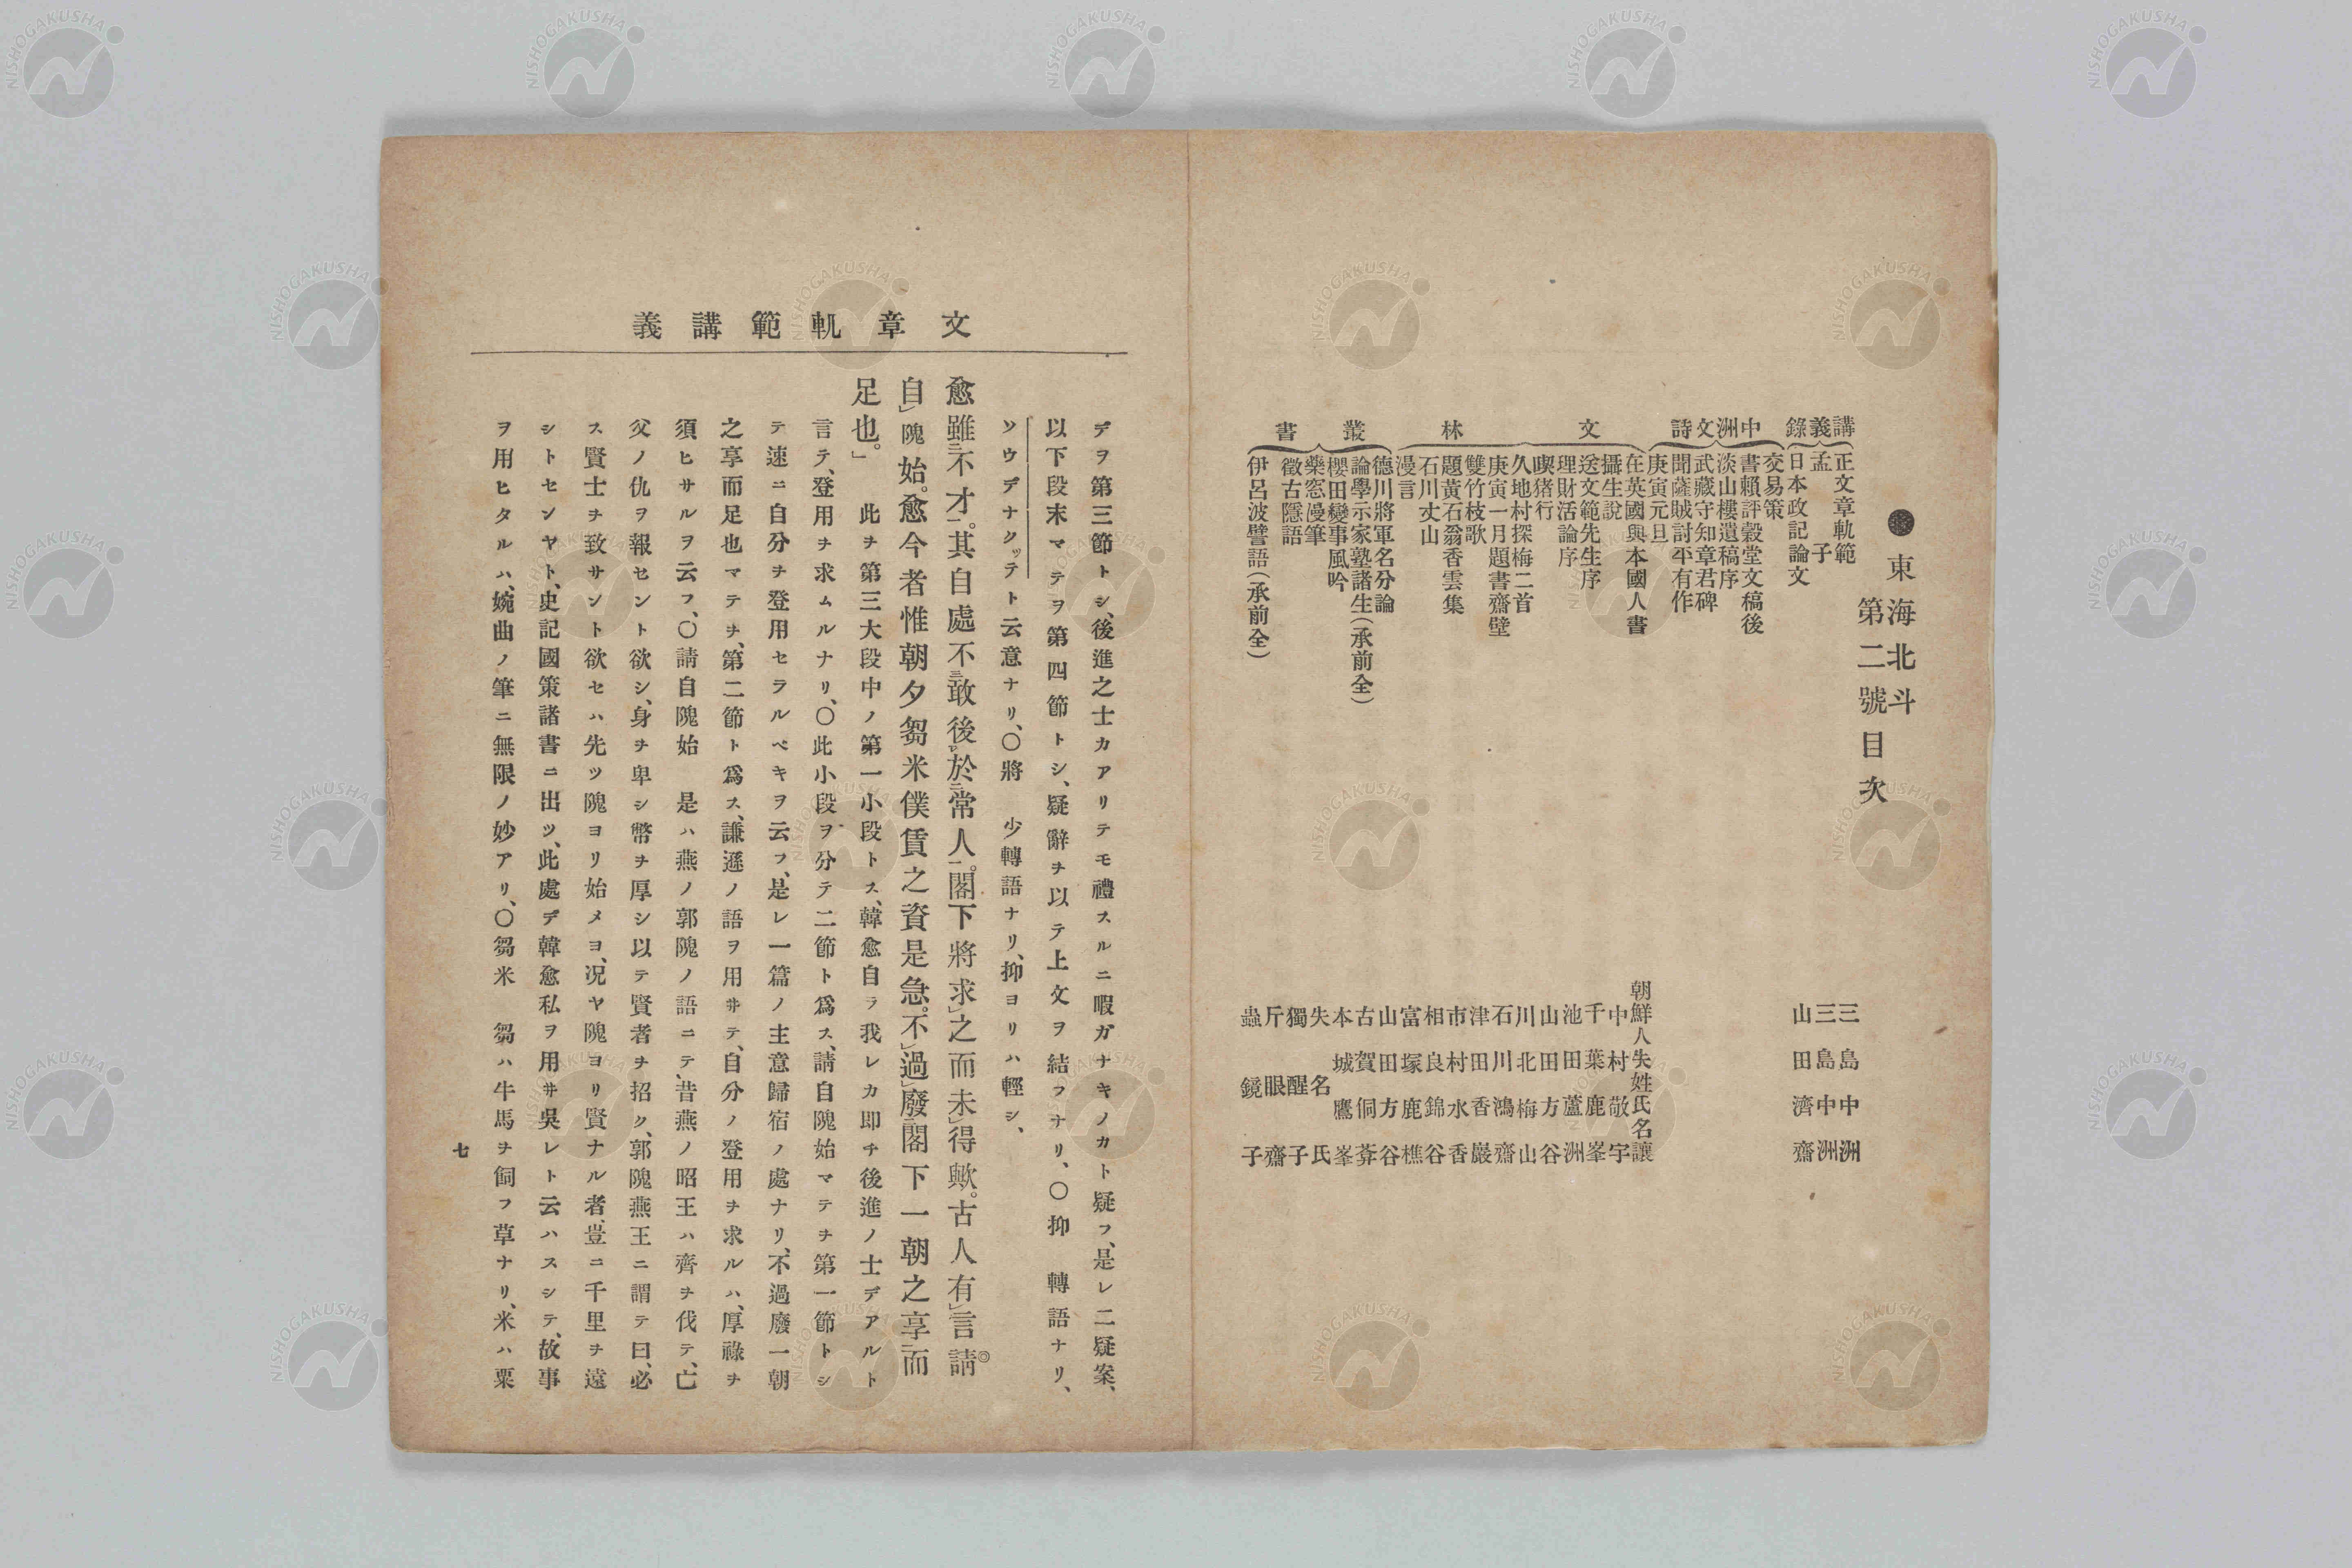 ●東海北斗
第二號目次
講義錄
正文章軌範 三島中洲
孟子 三島中洲
日本政記論文 山田濟齋
中洲文詩
交易策
書賴評穀堂文稿後
淡山樓遺稿序
武藏守知章君碑
聞薩賊討平有作
庚寅元旦
文林
在英國與本國人書 朝鮮人失姓氏名讓
攝生說 中村敬宇
送文範先生序 千葉鹿峯
理財活論序 池田蘆洲
喫猪行 山田方谷
久地村探梅二首 川北梅山
庚寅一月題書齋壁 石川鴻齋
雙竹枝歌 津田香巖
題黃石翁香雲集 市村水香
石川丈山 相良錦谷
漫言 富塚鹿樵
叢書
德川將軍名分論 山田方谷
論學示家塾諸生(承前全) 古賀侗莽
櫻田變事風吟 本城鷹峯
藥窓漫筆 失名氏
徵古隱語 獨醒子
斤眼齋
伊呂波譬語(承前全) 蟲鏡子
文章軌範講義
デヲ第三節トシ、後進之士カアリテモ禮スルニ暇ガナキノカト疑フ、是レ二疑案、
以下段末マテヲ第四節トシ、疑辭ヲ以テ上文ヲ結フナリ、〇抑 轉語ナリ、
ソウデナクッテト云意ナリ、〇將 少轉語ナリ、抑ヨリハ輕シ、
愈雖三不才一。其自處不三敢後二於常人一。閣下將求之而未得歟。古人有言請
自隗始。愈今者惟朝夕芻米僕賃之資是急。不過廢閣下一朝之享二而
足也。 此ヲ第三大段中ノ第一小段トス、韓愈自ラ我レカ即チ後進ノ士デアルト
言テ、登用ヲ求ムルナリ、〇此小段ヲ分テ二節ト爲ス、請自隗始マテヲ第一節トシ
テ速ニ自分ヲ登用セラルベキヲ云フ、是レ一篇ノ主意歸宿ノ處ナリ、不過廢一朝
之享而足也マテヲ、第二節ト爲ス、謙遜ノ語ヲ用ヰテ、自分ノ登用ヲ求ルハ、厚祿ヲ
須ヒサルヲ云フ、〇請自隗始 是ハ燕ノ郭隗ノ語ニテ、昔燕ノ昭王ハ齊ヲ伐テ、亡
父ノ仇ヲ報セント欲シ、身ヲ卑シ幣ヲ厚シ以テ賢者ヲ招ク、郭隗燕王ニ謂テ曰、必
ス賢士ヲ致サント欲セハ先ツ隗ヨリ始メヨ、况ヤ隗ヨリ賢ナル者、豈ニ千里ヲ遠
シトセンヤト、史記國策諸書ニ出ツ、此處デ韓愈私ヲ用ヰ吳レト云ハスシテ、故事
ヲ用ヒタルハ、婉曲ノ筆ニ無限ノ妙アリ、〇芻米 芻ハ牛馬ヲ飼フ草ナリ、米ハ粟
七
NISHOGAKUSHA